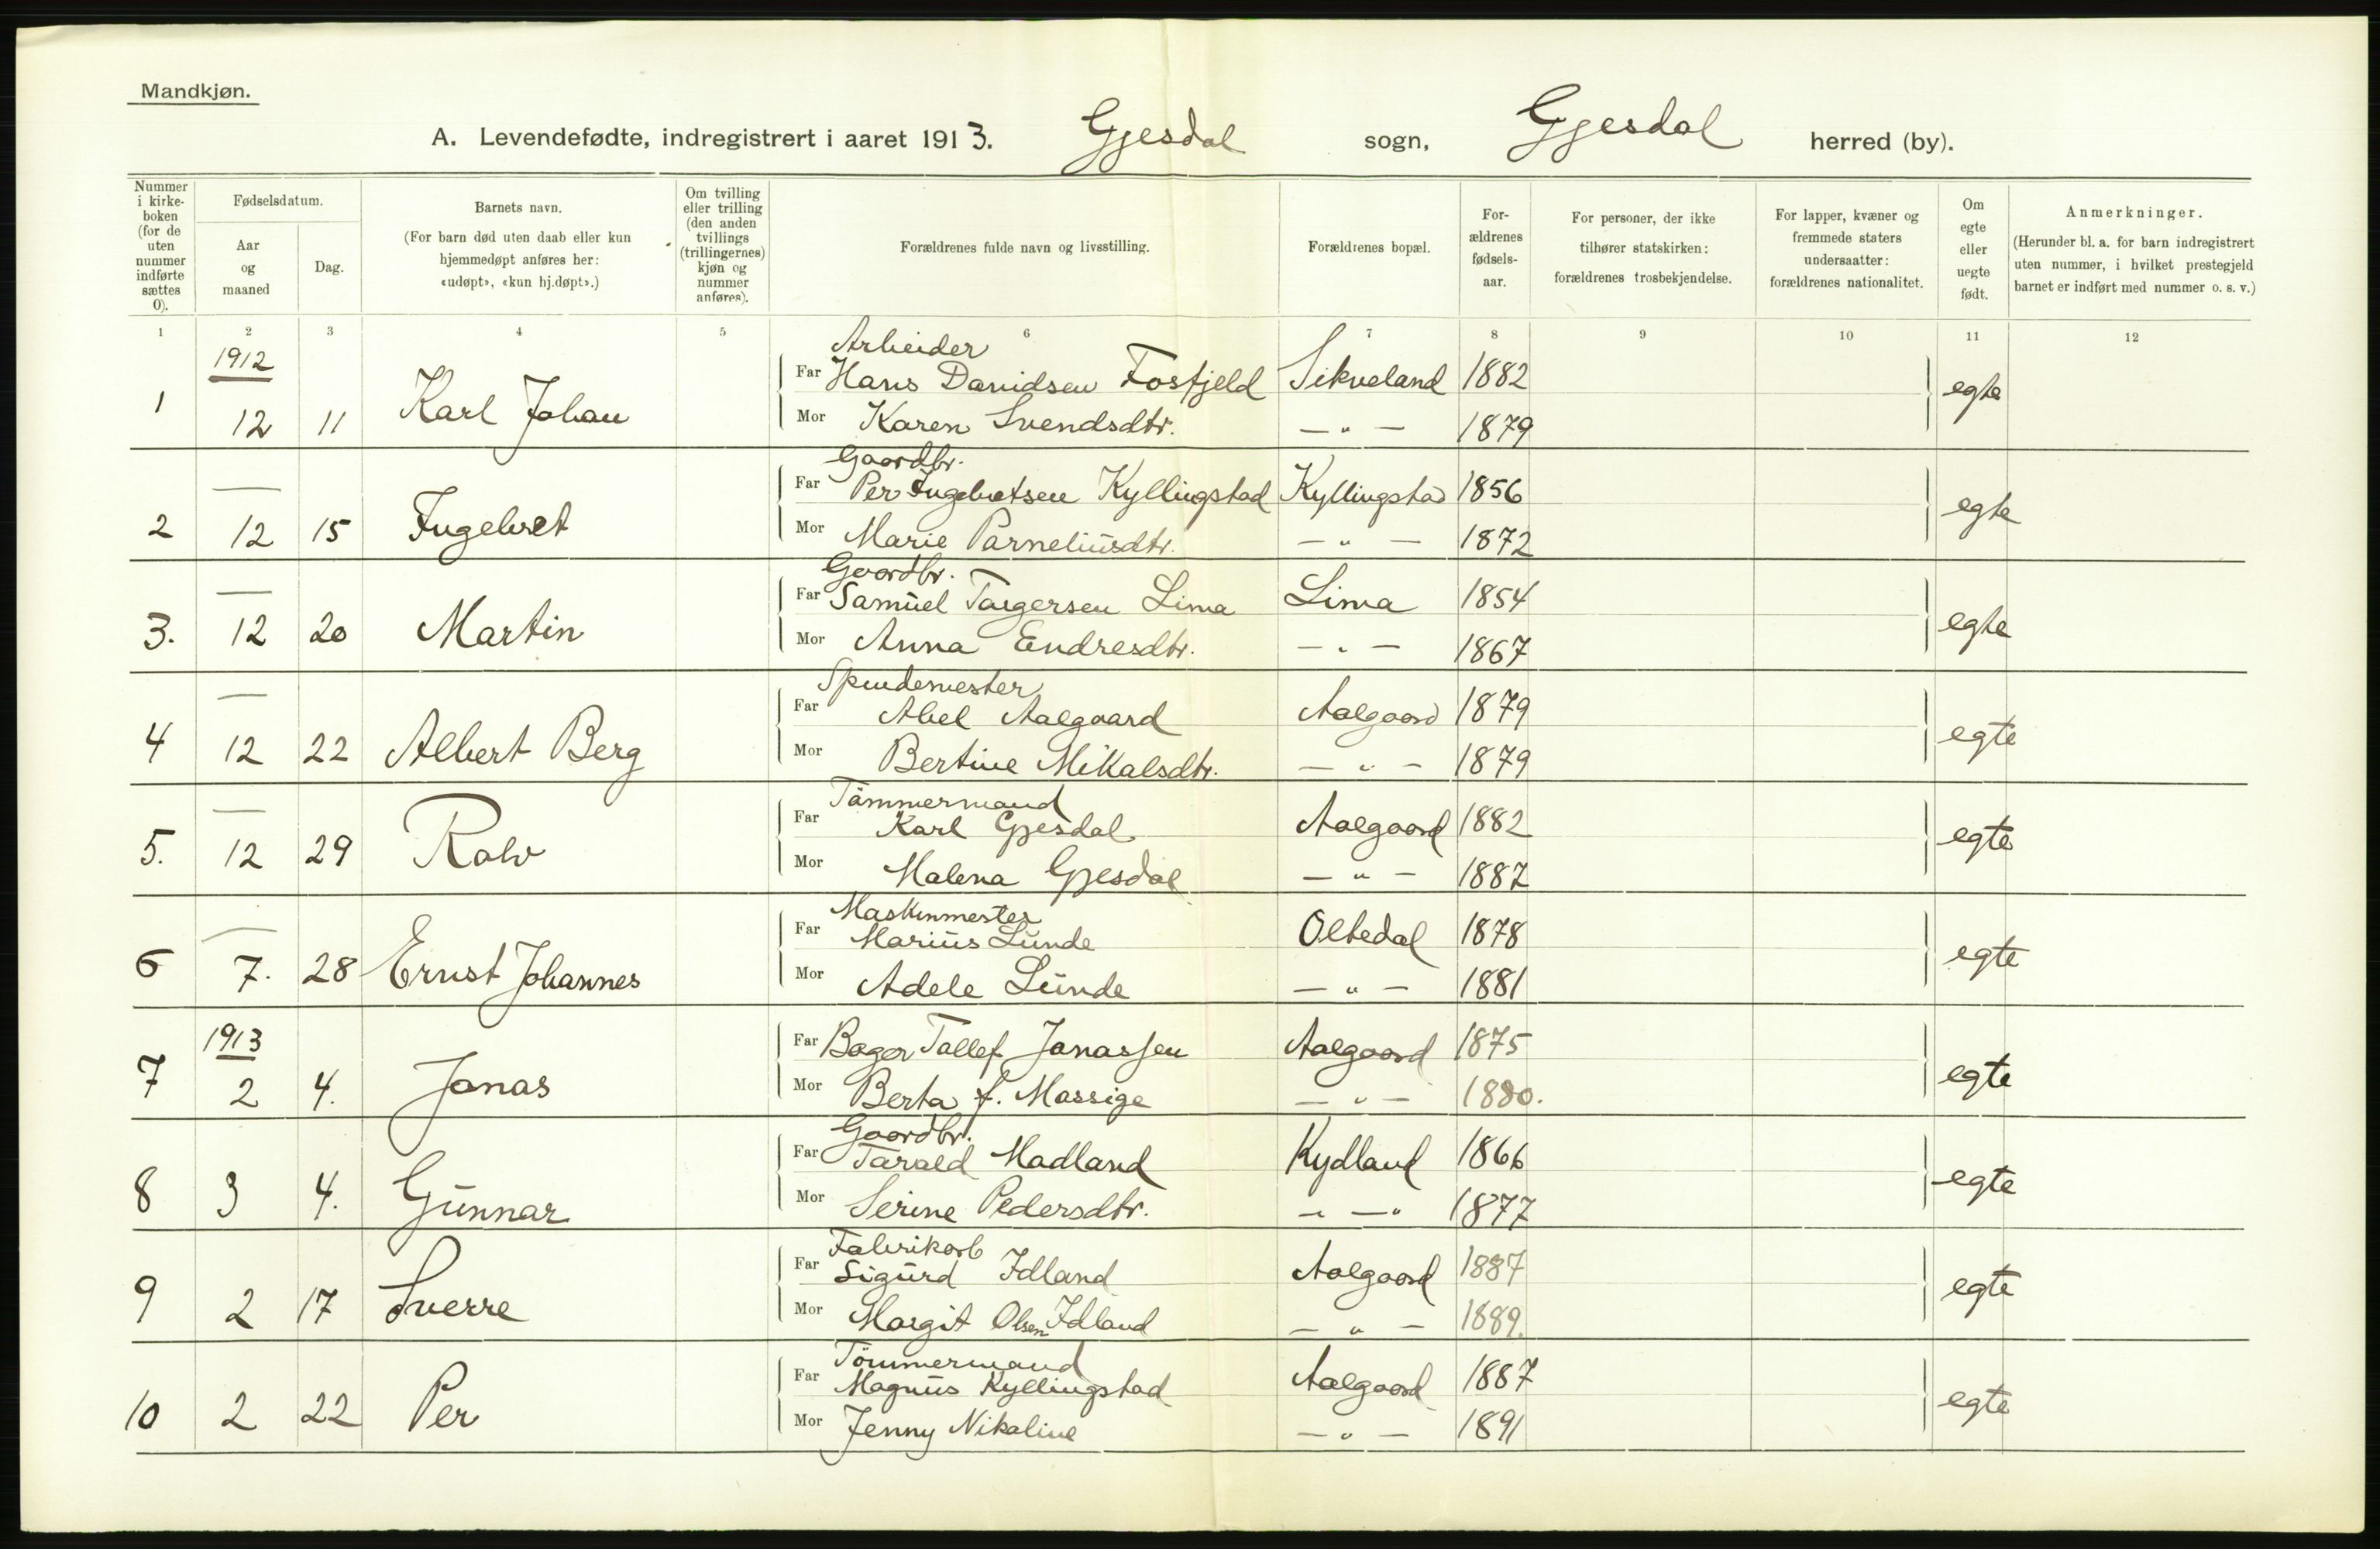 Mandkjøn.
A. Levendefødte, indregistrert i aaret 1913. Gjesdal sogn, Gjesdal herred (by).
Nummer i kirke-boken (for de uten nummer indførte sættes 0).
Fødselsdatum.
Aar og maaned
Dag.
Barnets navn.
(For barn død uten daab eller kun hjemmedøpt anføres her: «udøpt», «kun hj.døpt».)
Om tvilling eller trilling (den anden tvillings (trillingernes) kjøn og nummer anføres).
Forældrenes fulde navn og livsstilling.
Forældrenes bopæl.
For-ældrenes fødsels-aar.
For personer, der ikke tilhører statskirken: forældrenes trosbekjendelse.
For lapper, kvæner og fremmede staters undersaatter: forældrenes nationalitet.
Om egte eller uegte født.
Anmerkninger.
(Herunder bl. a. for barn indregistrert uten nummer, i hvilket prestegjeld barnet er indført med nummer o. s. v.)
1 2 3 4 5 6 7 8 9 10 11 12
1912 Arbeider
Far Hans Davidsen Fosfjeld Sikveland 1882
1 12 11 Karl Johan egte
Mor Karen Svendsdtr. — " — 1879
Gaardbr.
— Far Per Ingebretsen Kyllingstad Kyllingstad 1856
2 12 15 Ingebret egte
Mor Marie Parneliusdtr. — " — 1872
Gaardbr.
— Far Samuel Torgersen Lima Lima 1854
3. 12 20 Martin egte
Mor Anna Endresdtr. — " — 1867
Spindemester
— Far Abel Aalgaard Aalgaard 1879
4 12 22 Albert Berg egte
Mor Bertine Mikalsdtr. — " — 1879
Tömmermand
— Far Karl Gjesdal Aalgaard 1882
5. 12 29 Ralv egte
Mor Malena Gjesdal — " — 1887
Maskinmester
— Far Marius Lunde Oltedal 1878
6 7. 28 Ernst Johannes egte
Mor Adele Lunde — " — 1881
1913 Far Bager Tollef Jonassen Aalgaard 1875
7 2 4. Jonas egte
Mor Berta f. Massige — " — 1880.
Gaardbr.
Far Tarald Madland Kydland 1866
8 3 4. Gunnar egte
Mor Serine Pedersdtr. — " — " 1877
Fabrikarb
Far Sigurd Idland Aalgaard 1887
9 2 17 Sverre egte
Mor Margit Olsen Idland — " — 1889.
Tömmermand
Far Magnus Kyllingstad Aalgaard 1887
10 2 22 Per egte
Mor Jenny Nikoline — " — 1891